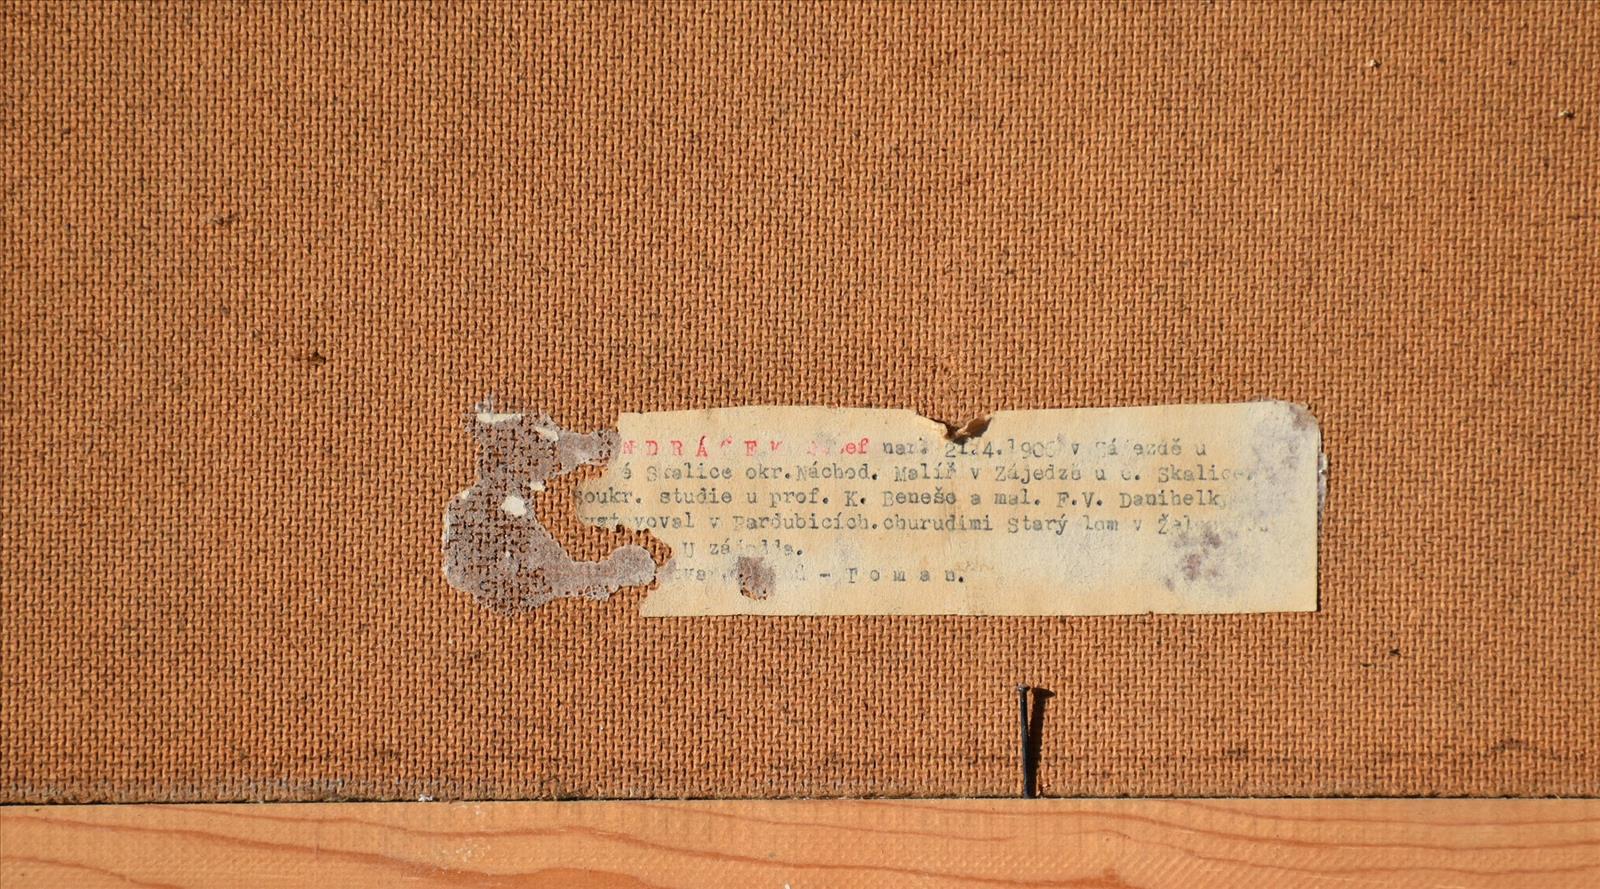 NDRÁČEK Josef nar. 21.4.1906 v Zájezdě u
é Skalice okr.Náchod. Malíř v Zájezdě u č. Skalice.
Soukr. studie u prof. K. Beneše a mal. F.V. Danihelky
v Pardubicích.churudimi Starý lom v
U
- T o m a n.